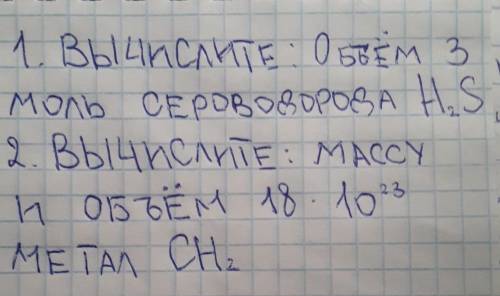 1. Вычислите: Объём 3
моль сероводорода H₂S
2. Вычислите: массу
и объём 18 · 10²³
метал CH₂